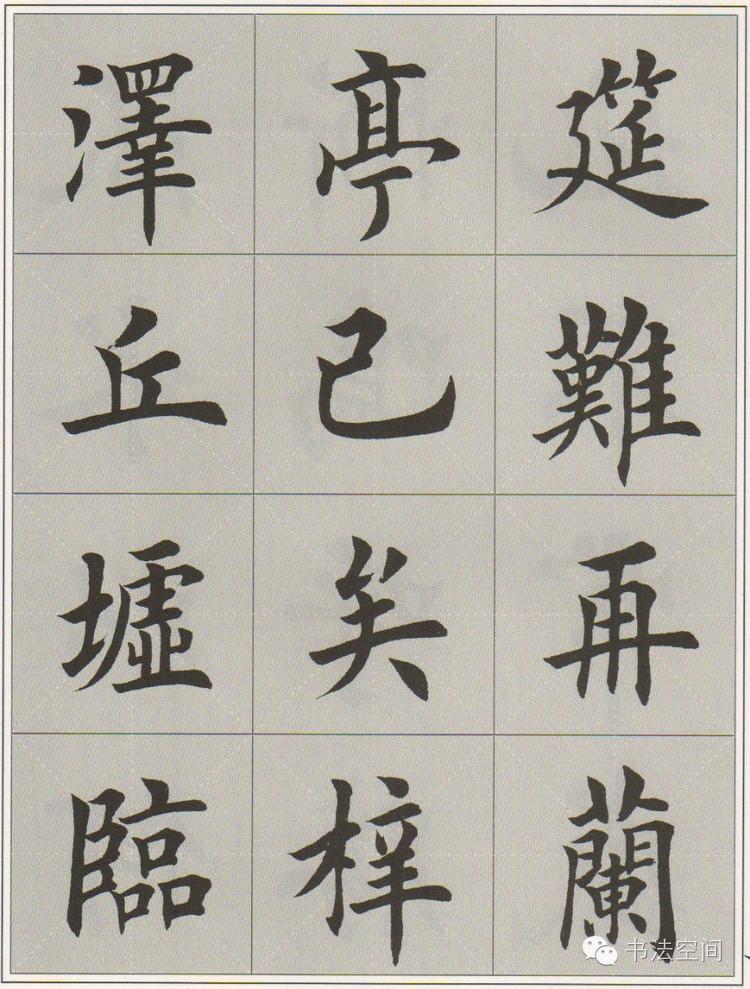 筵難再蘭
亭已矣梓
澤丘墟臨
书法空间